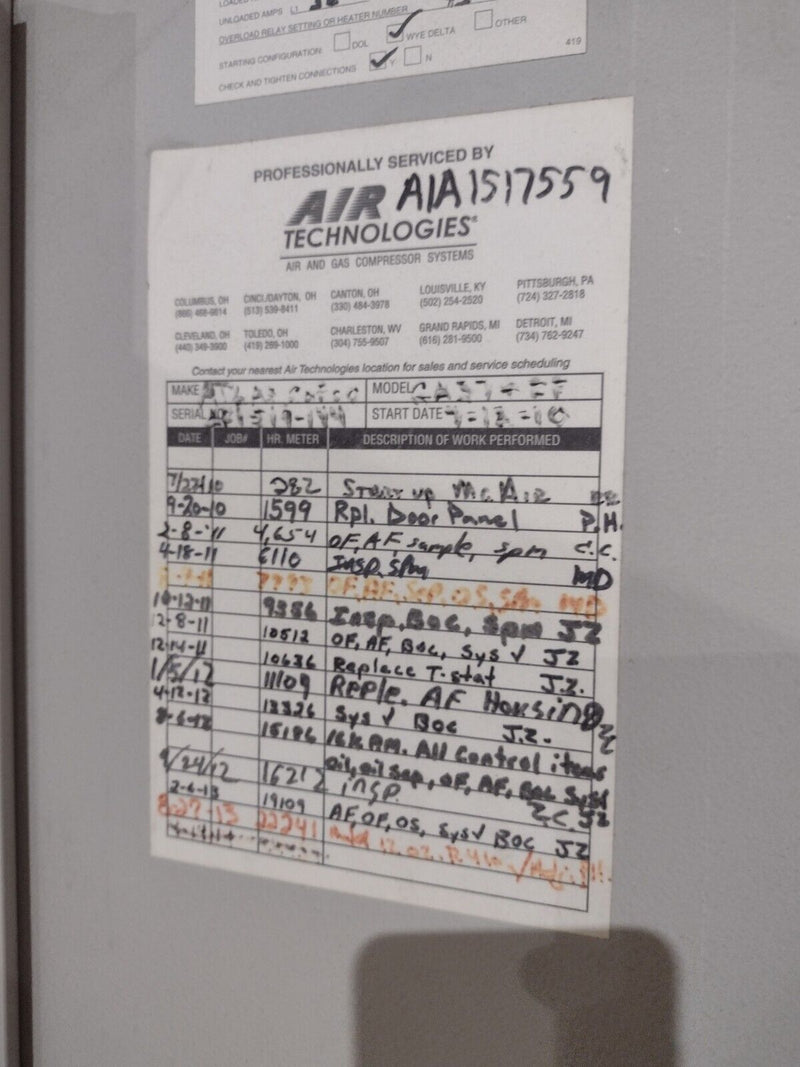 UNLOADED AMPS L1
OVERLOAD RELAY SETTING OR HEATER NUMBER
STARTING CONFIGURATION: DOL ✓ WYE DELTA OTHER
CHECK AND TIGHTEN CONNECTIONS ✓ Y N
419
PROFESSIONALLY SERVICED BY
AIA1517559
AIR
TECHNOLOGIES®
AIR AND GAS COMPRESSOR SYSTEMS
COLUMBUS, OH CINCI/DAYTON, OH CANTON, OH LOUISVILLE, KY PITTSBURGH, PA
(513) 539-8411 (330) 484-3978 (502) 254-2520 (724) 327-2818
CLEVELAND, OH TOLEDO, OH CHARLESTON, WV GRAND RAPIDS, MI DETROIT, MI
(440) 349-3900 (419) 269-1000 (304) 755-9507 (616) 281-9500 (734) 762-9247
Contact your nearest Air Technologies location for sales and service scheduling
MAKE ATLAS COPCO MODEL GA37+FF
SERIAL START DATE
DATE JOB# HR. METER DESCRIPTION OF WORK PERFORMED
282 Start up
9-20-10 1599 Rpl. Door Panel P.H.
2-8-'11 4,654 OF, AF, sample, spm C.C.
4-18-11 6110 INSP, SPM MD
OF, AF, Sep, OS, SPM MD
10-12-11 9386 Insp, BOC, Spm JZ
12-8-11 10512 OF, AF, BOC, Sys ✓ JZ
12-14-11 10636 Replace T-stat J.Z.
1/5/12 11109 Reple. AF Housing
4-12-12 13326 Sys ✓ BOC J.Z.
8-6-12 15186 16K PM. All Control items
oil, oil sep, OF, AF, BOC Sys✓ JZ
9/24/12 16212 insp. Z.C.
2-6-13 19109 AF, OF, OS, Sys✓ BOC JZ
8-27-13 22241 12 oz.